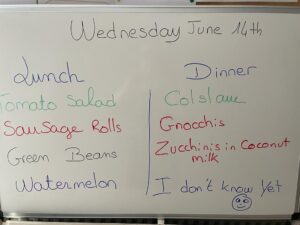 Wednesday June 14th
Lunch
Tomato Salad
Sausage Rolls
Green Beans
Watermelon
Dinner
Colslaw
Gnocchis
Zucchinis in Coconut
milk
I don't know yet